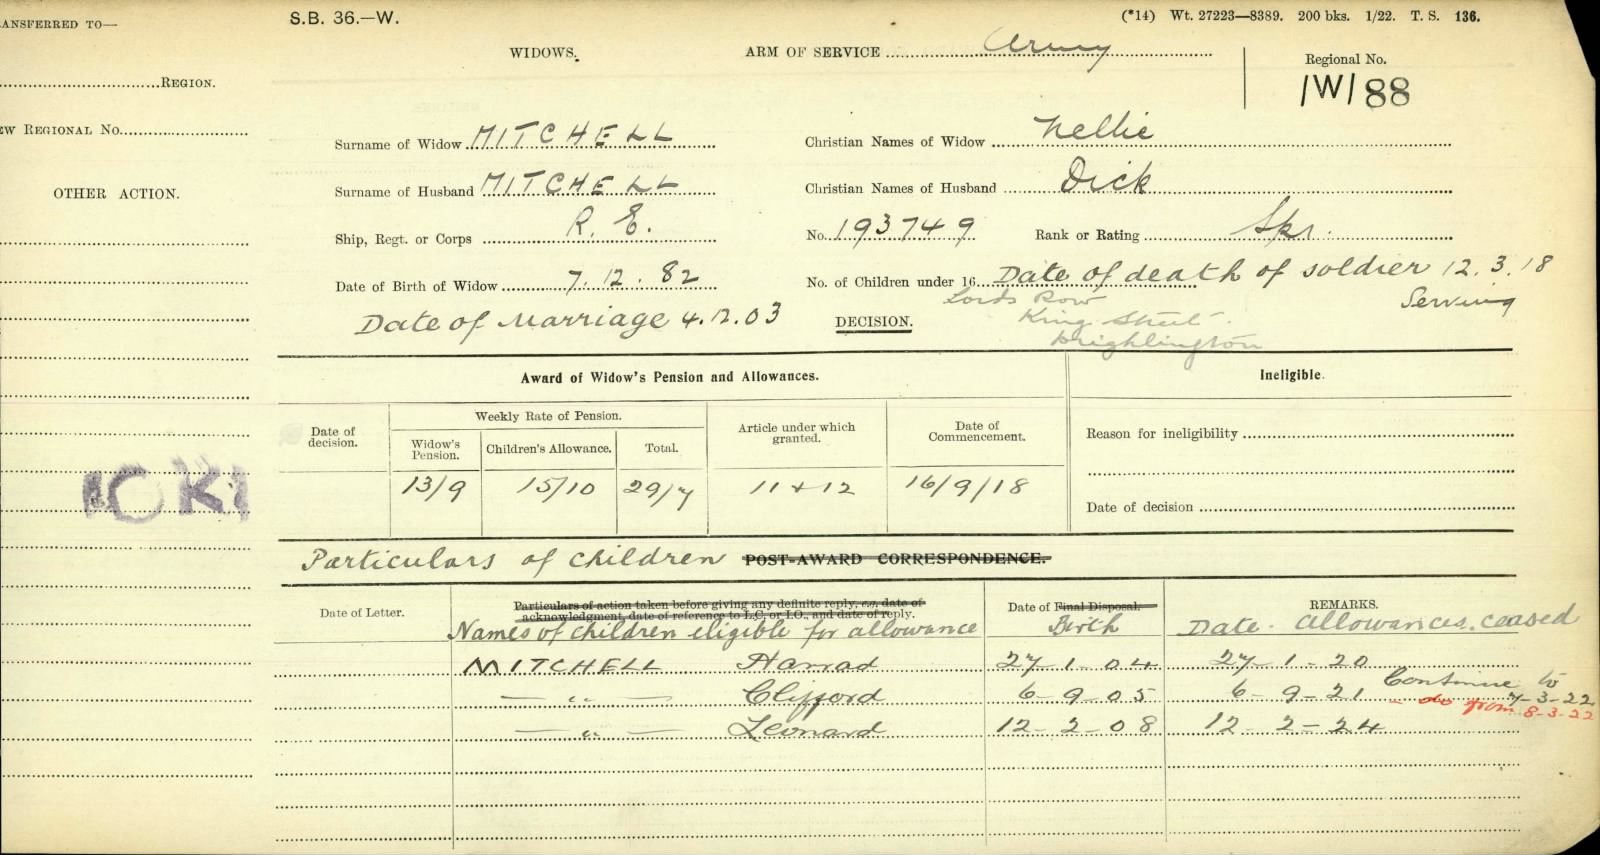 TRANSFERRED TO—
S.B. 36.—W.
(*14) Wt. 27223—8389. 200 bks. 1/22. T. S. 136.
WIDOWS.
ARM OF SERVICE Army
Regional No.
1W188
REGION.
NEW REGIONAL NO.
Surname of Widow MITCHELL
Christian Names of Widow Nellie
OTHER ACTION.
Surname of Husband MITCHELL
Christian Names of Husband Dick
Ship, Regt. or Corps R. E.
No. 193749
Rank or Rating Spr.
Date of Birth of Widow 7.12.82
No. of Children under 16 Date of death of soldier 12.3.18
Serving
Date of Marriage 4.12.03
DECISION.
Lords Row
King Street
Drighlington
Award of Widow's Pension and Allowances.
Ineligible.
Date of decision.
Weekly Rate of Pension.
Widow's Pension.
Children's Allowance.
Total.
Article under which granted.
Date of Commencement.
Reason for ineligibility
13/9 15/10 29/7 11 + 12 16/9/18
Date of decision
Particulars of children POST-AWARD CORRESPONDENCE.
Date of Letter.
Particulars of action taken before giving any definite reply, e.g. date of
acknowledgment, date of reference to L.C. or I.O., and date of reply.
Names of children eligible for allowance
Date of Final Disposal.
Birth
REMARKS.
Date Allowances ceased
MITCHELL Harrad 27-1-04 27-1-20
— „ — Clifford 6-9-05 6-9-21 Continue to 7-3-22
do from 8-3-22
— „ — Leonard 12-2-08 12-2-24